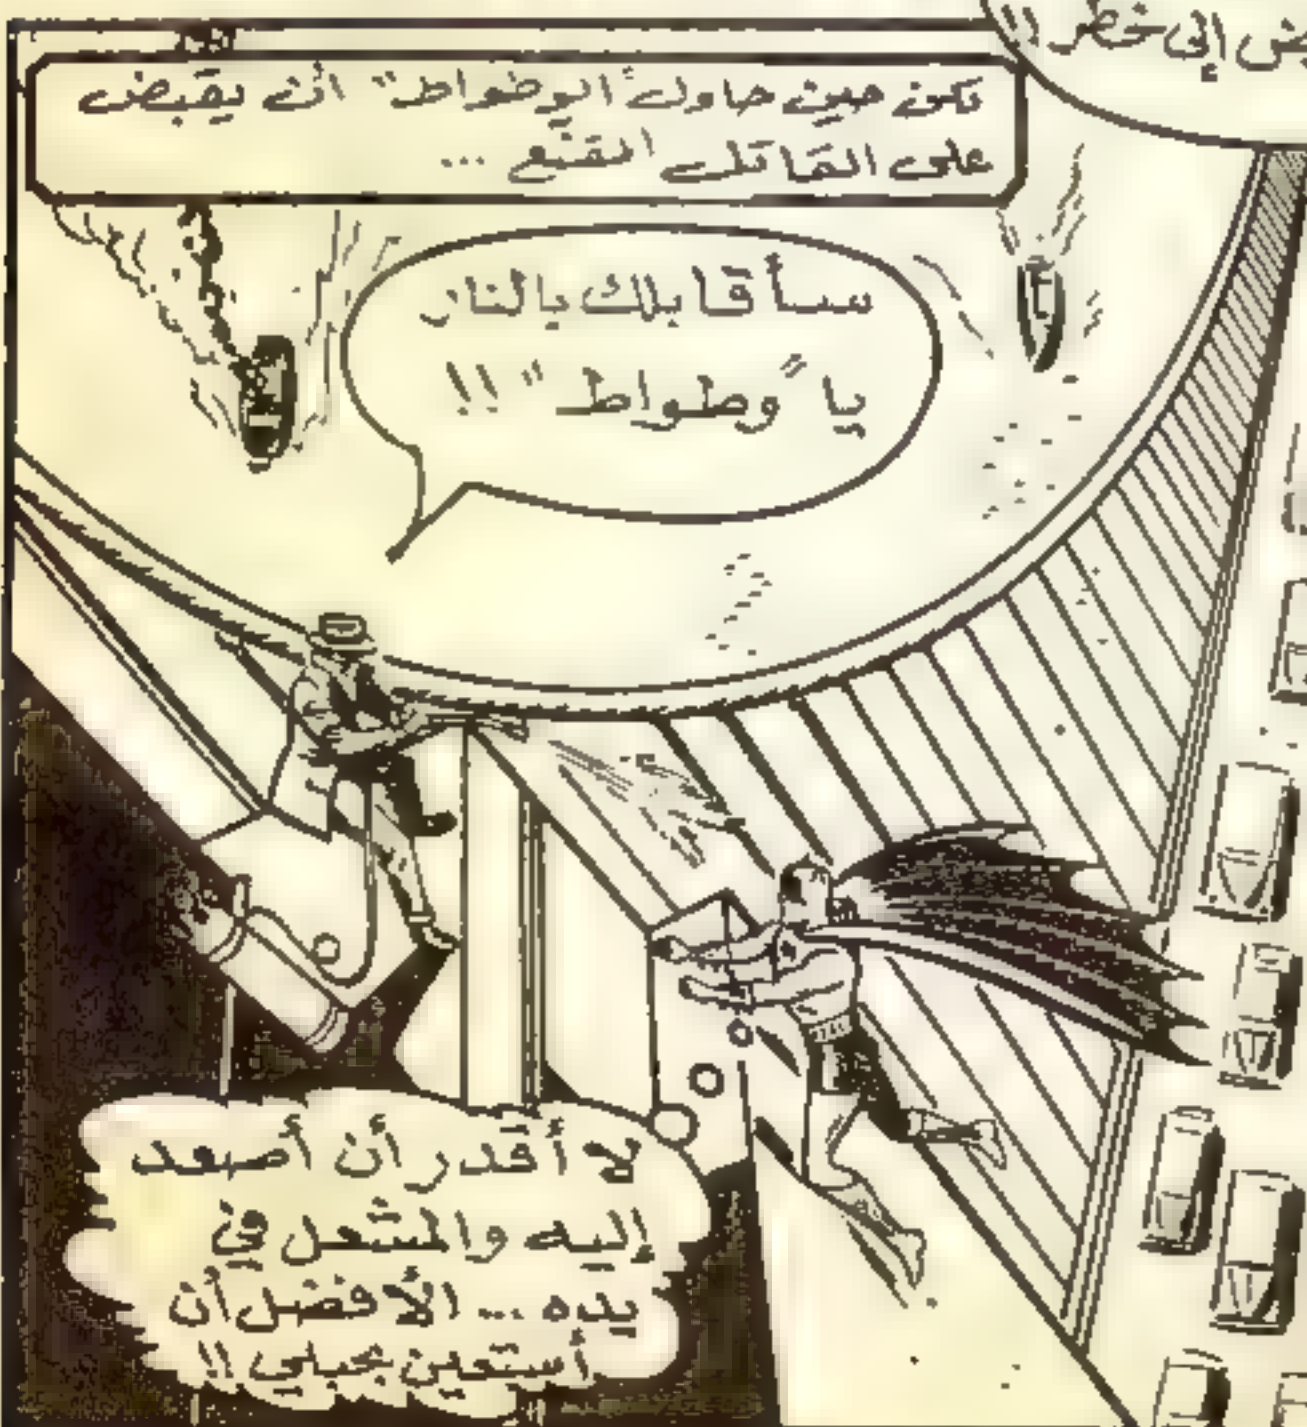 ض إلى خطر !!
لكن حين حاول "الوطواط" أن يقبض
على القاتل المقنّع ...
سأقابلك بالنار
يا "وطواط" !!
لا أقدر أن أصعد
إليه والمشعل في
يده ... الأفضل أن
أستعين بحبلي !!